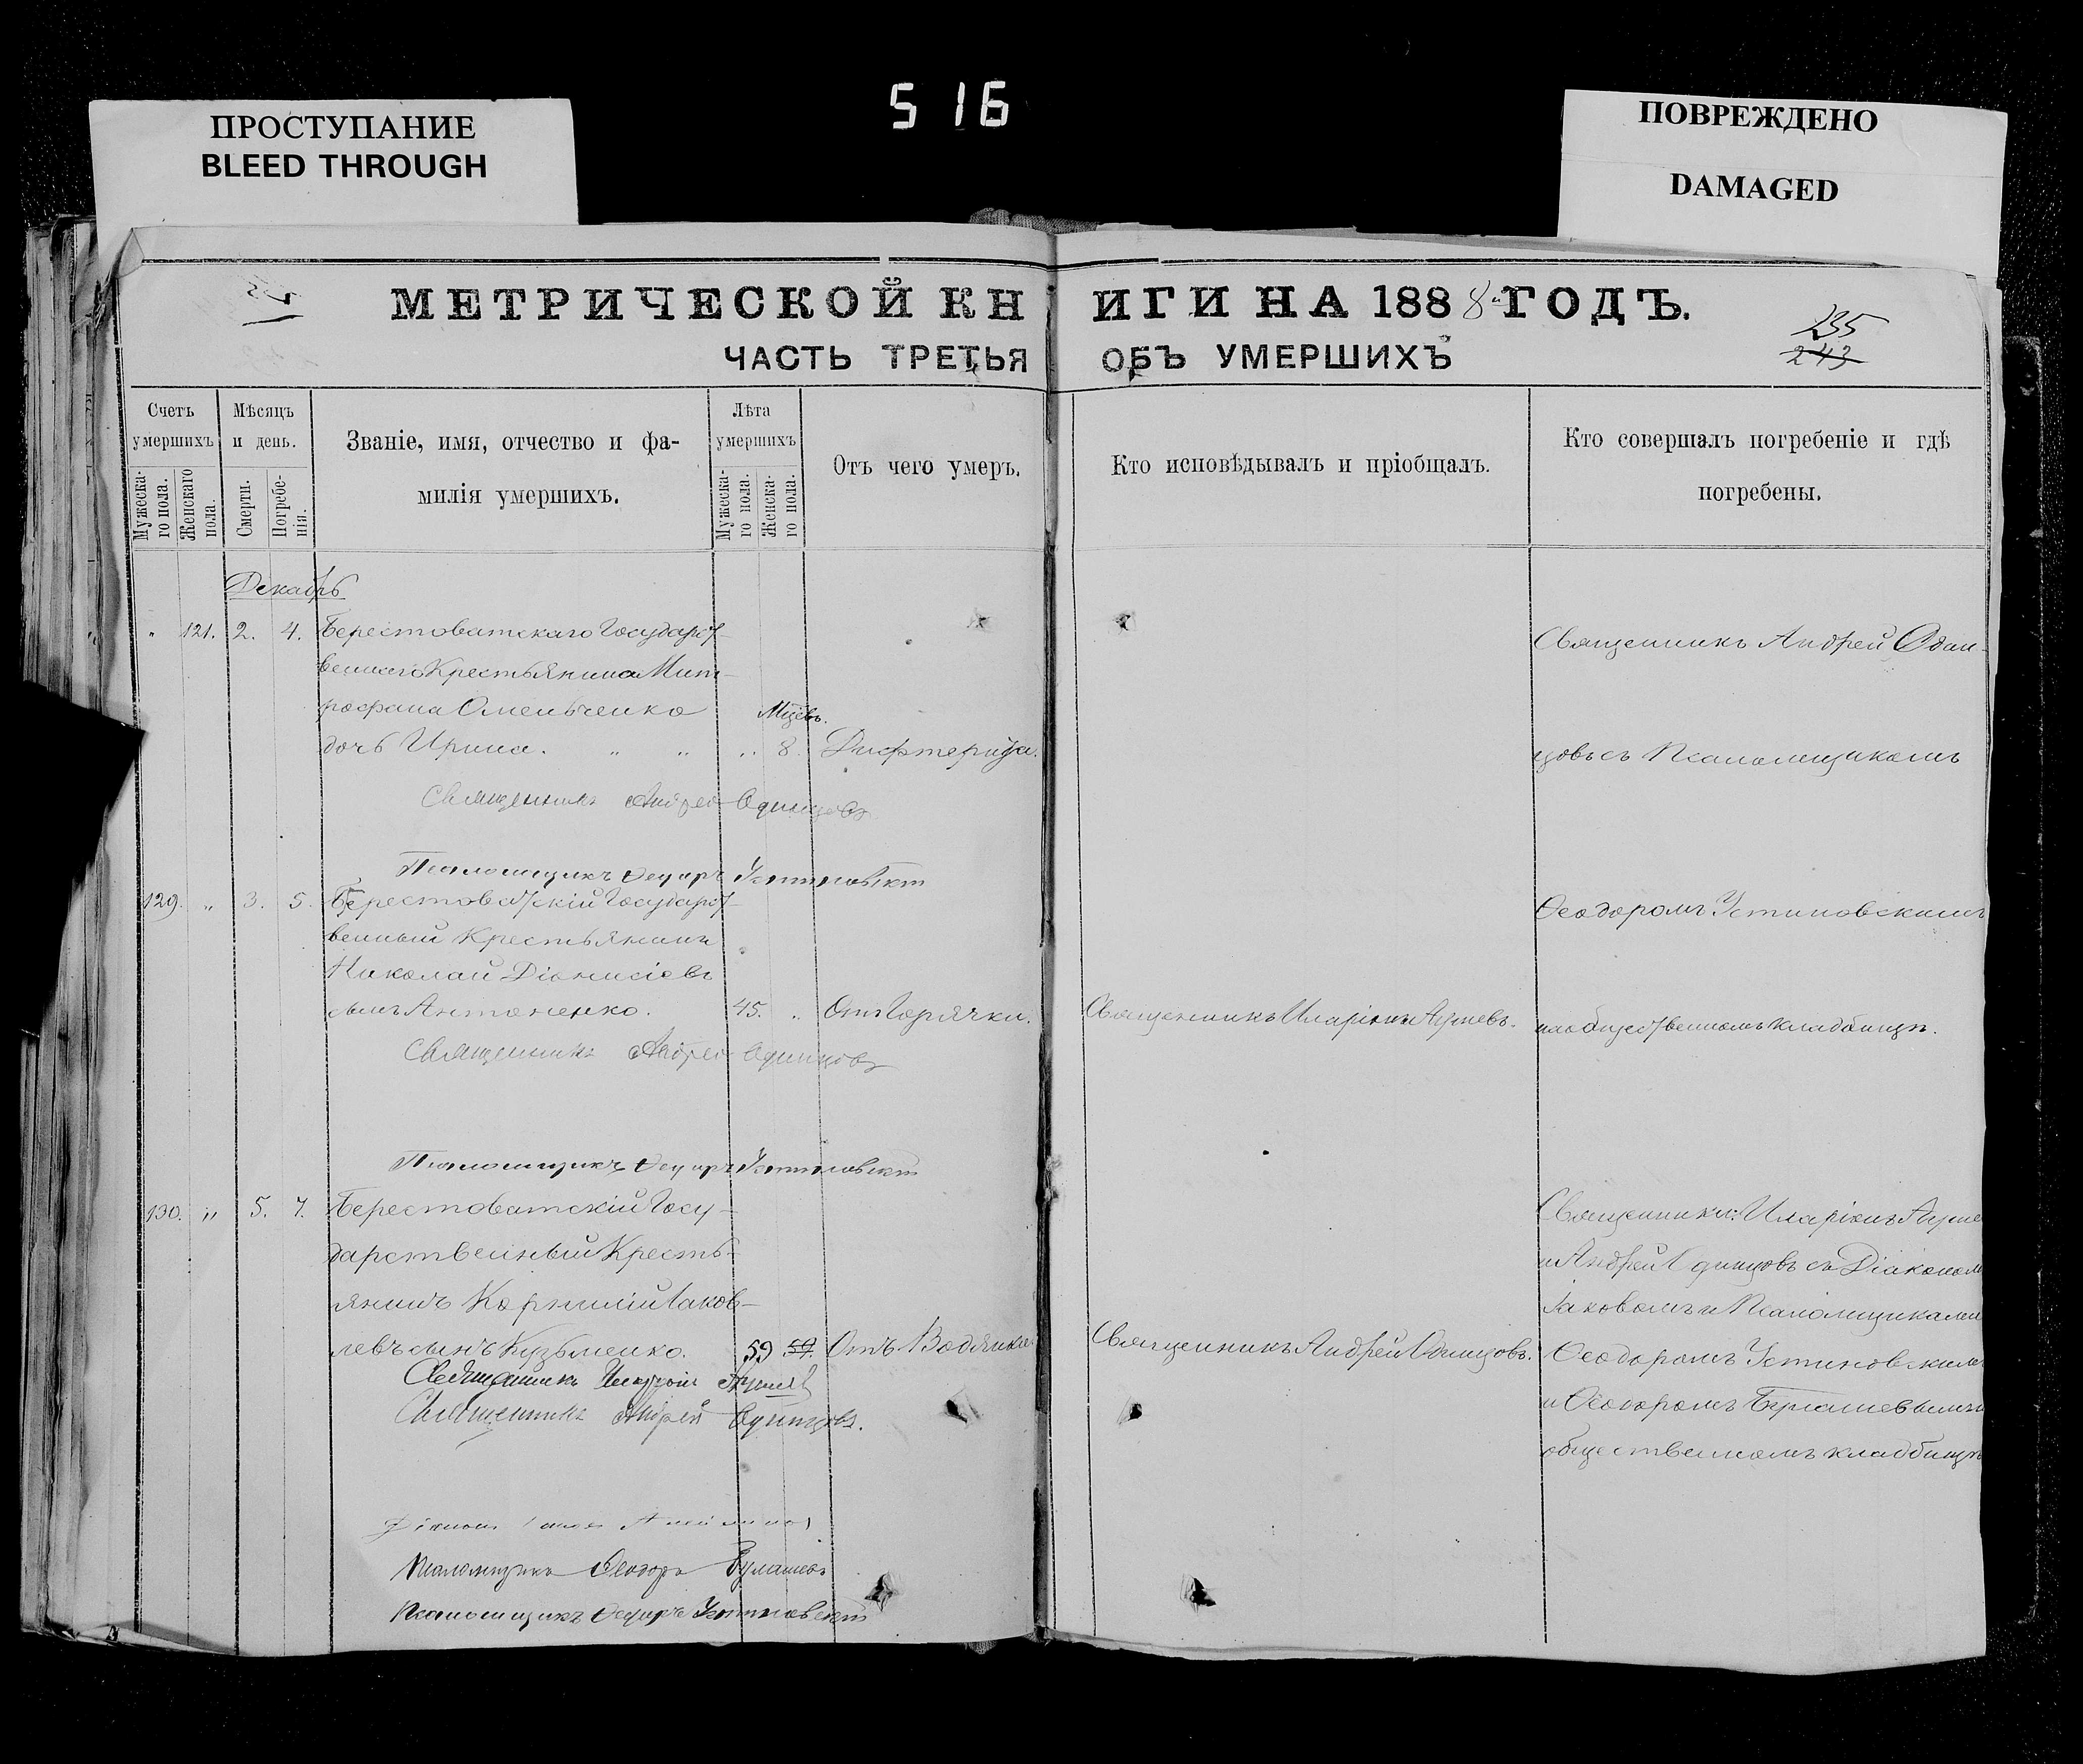 516
ПРОСТУПАНИЕ
BLEED THROUGH
ПОВРЕЖДЕНО
DAMAGED
МЕТРИЧЕСКОЙ КНИГИ НА 1888 ГОДЪ.
235
243
ЧАСТЬ ТРЕТЬЯ ОБЪ УМЕРШИХЪ
Счетъ умершихъ
Мужеска-го пола.
Женскаго пола.
Мѣсяцъ и день.
Смерти.
Погребе-нія.
Званіе, имя, отчество и фа-
милія умершихъ.
Лѣта умершихъ
Мужеска-го пола.
Женска-го пола.
Отъ чего умеръ.
Кто исповѣдывалъ и пріобщалъ.
Кто совершалъ погребеніе и гдѣ
погребены.
Декабрь
" 121. 2. 4. Берестоватскаго Государст-
веннаго Крестьянина Мит-
рофана Омельченко Мцевъ.
дочь Ирина. " " " 8. Дифтерита.
Священникъ Андрей Один-
цовъ съ Псаломщикомъ
Священникъ Андрей Одинцовъ
Псаломщикъ Ѳеодоръ Устиновскій
129. " 3. 5. Берестоватскій Государст-
венный Крестьянинъ
Николай Діонисіевъ
сынъ Антоненко. 45. " Отъ Горячки.
Священникъ Иларіонъ
Ѳеодоромъ Устиновскимъ
на общественномъ кладбищѣ.
Священникъ Андрей Одинцовъ
Псаломщикъ Ѳеодоръ Устиновскій
130. " 5. 7. Берестоватскій Госу-
дарственный Кресть-
янинъ Корнилій Іаков-
левъ сынъ Кузьменко. 59 59. Отъ Водянки
Священникъ Андрей Одинцовъ.
Священники: Иларіонъ
и Андрей Одинцовъ съ Діакономъ
Іаковомъ и Псаломщиками
Ѳеодоромъ Устиновскимъ
и Ѳеодоромъ
общественномъ кладбищѣ
Священникъ Иларіонъ
Священникъ Андрей Одинцовъ.
Діаконъ Іаковъ
Псаломщикъ Ѳеодоръ
Псаломщикъ Ѳеодоръ Устиновскій